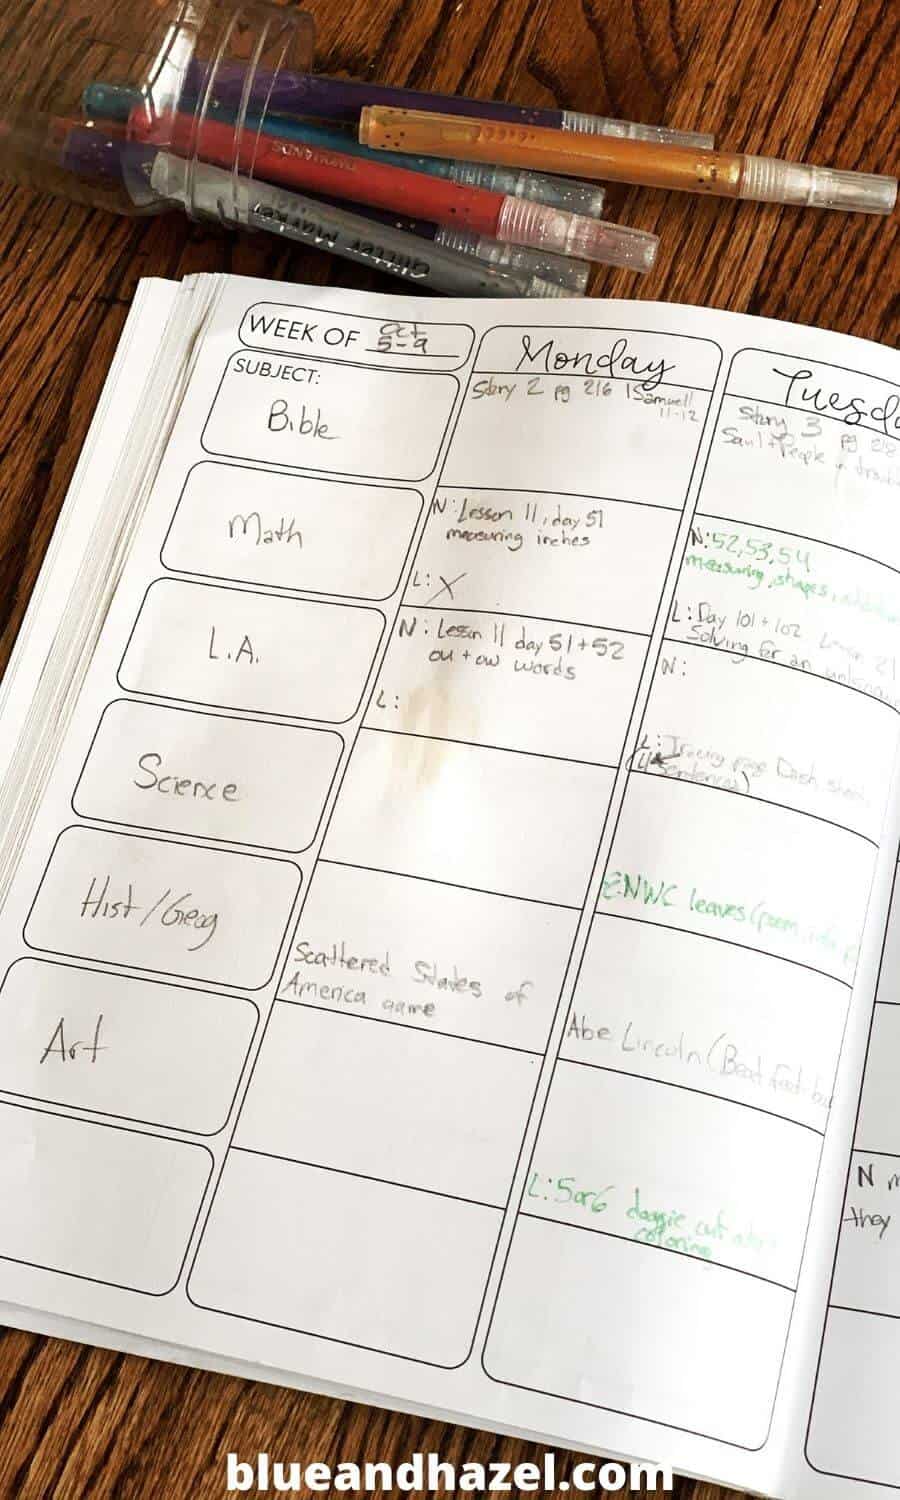 Glitter Marker
WEEK OF Oct
5-9
SUBJECT:
Monday
Tuesd
Bible
Story 2 pg 216 1 Samuel
11-12
Story 3 pg 218
Saul + People in
Math
N: Lesson 11, day 51
measuring inches
L: X
N: 52, 53, 54
measuring, shapes,
L: Day 101 + 102 Lesson 21
Solving for an unknown
L.A.
N: Lesson 11 day 51 + 52
ou + ow words
L:
N:
L: Tracing page Dash,
(4 Sentences)
Science
ENWC leaves (poem,
Hist/Geog
Scattered States of
America game
Abe Lincoln (Beat
Art
L: 5 or 6 doggie cut
coloring
N
they
blueandhazel.com